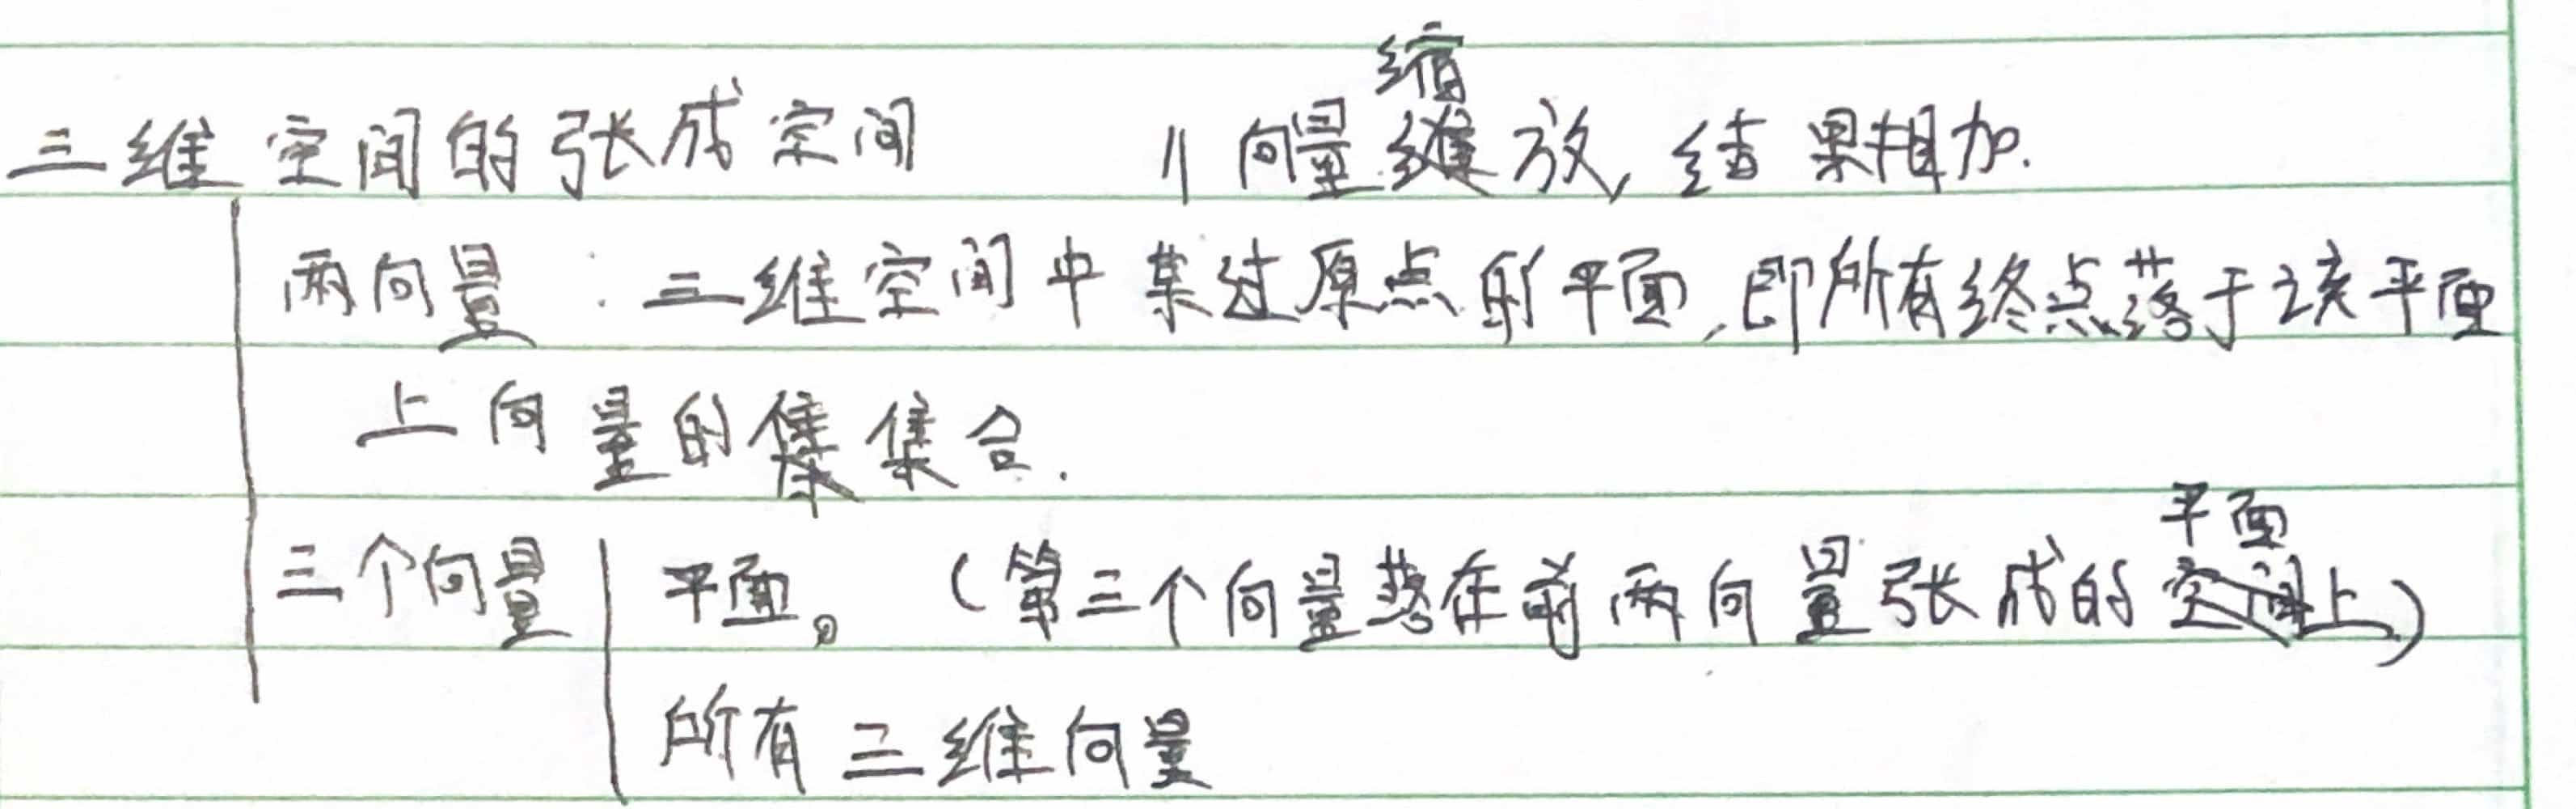 三维空间的张成空间 // 向量缩放, 结果相加.
两向量: 三维空间中某过原点的平面, 即所有终点落于该平面
上向量的集合.
三个向量 平面。(第三个向量落在前两向量张成的平面上)
所有三维向量